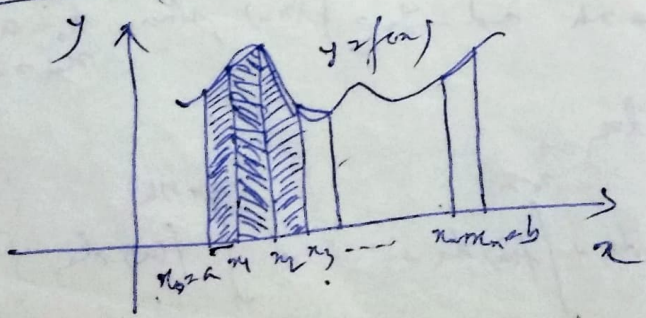 y
y=f(x)
x₀=a x₁ x₂ x₃ ----- xₙ₋₁ xₙ=b
x